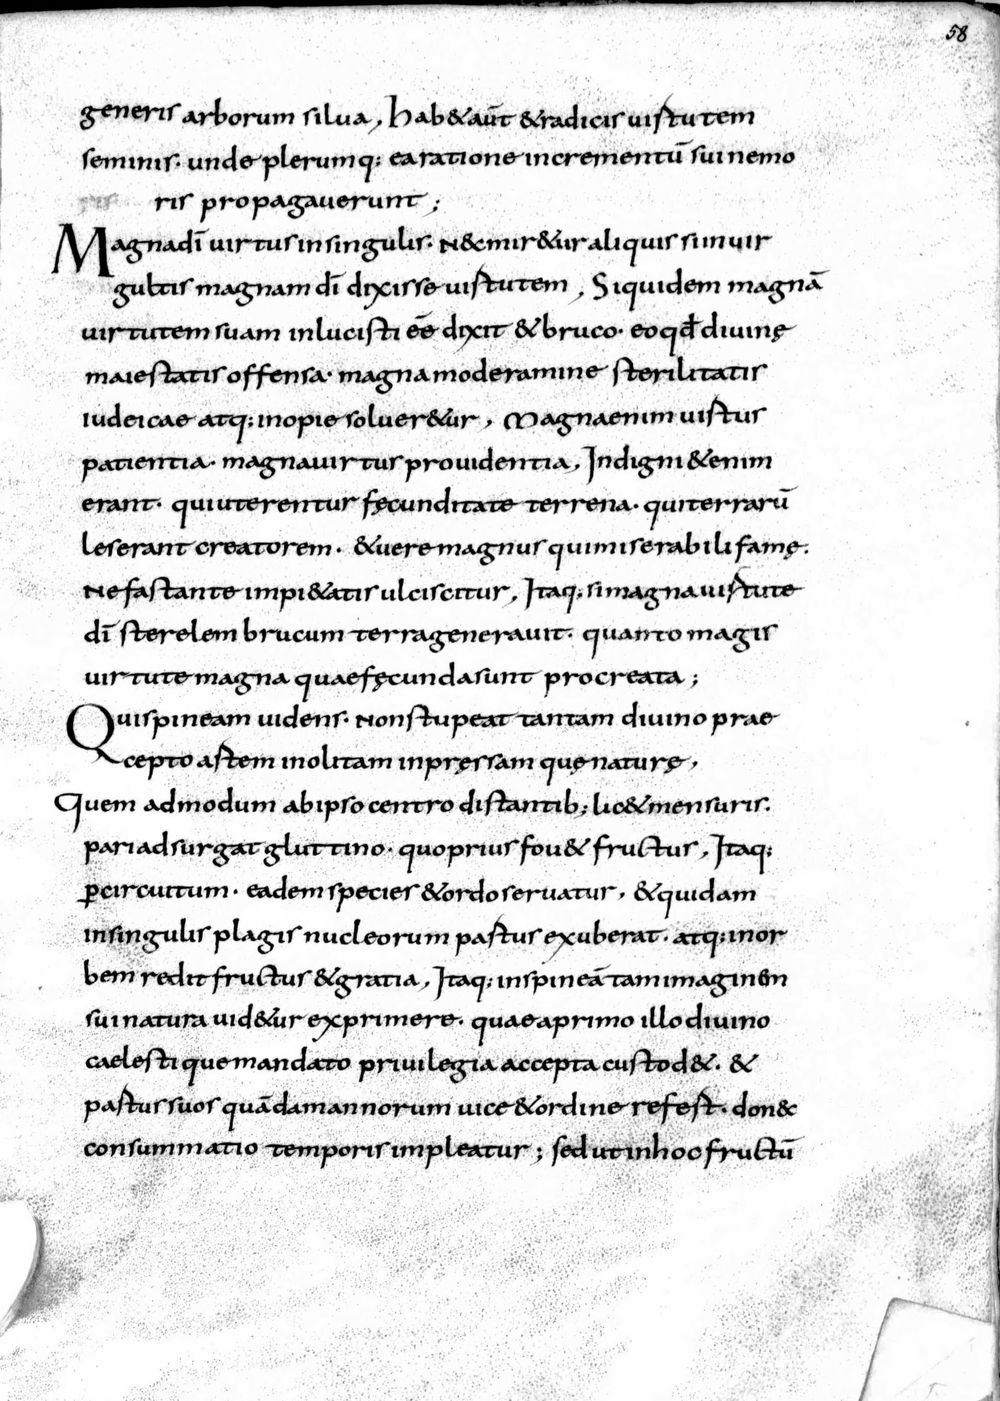 58
generis arborum silua, Hab&aūt &radicis uirtutem
seminis· unde plerumq; ea ratione incrementū sui nemo
ris propagauerunt ;
Magna dī uirtus in singulis· N&mir&ur aliquis si in uir
gultis magnam dī dixisse uirtutem, Siquidem magnā
uirtutem suam in lucisti eē dixit & bruco· eo qđ diuinę
maiestatis offensa· magna moderamine sterilitatis
iudeicae atq; inopie soluer&ur, Magna enim uirtus
patientia· magna uirtus prouidentia, Indigni & enim
erant· qui uterentur fęcunditate terrena· qui terrarū
leserant creatorem· & uere magnus qui miserabili famę·
Nefastante impi&atis ulciscitur, Itaq; si magna uirtute
dī sterelem brucum terra generauit· quanto magis
uirtute magna quae fęcunda sunt procreata ;
Quis pineam uidens· Non stupeat tantam diuino prae
cepto astem inolitam inpręssam quę naturę,
Quem admodum ab ipso centro distantib; lic& mensuris·
pari adsurgat gluttino· quo prius fou& fructus, Itaq;
ꝑ circuitum· eadem species & ordo seruatur, & quidam
in singulis plagis nucleorum pastus exuberat· atq; in or
bem redit fructus & gratia, Itaq; in spineā tam imaginen
sui natura uid&ur exprimere· quae a primo illo diuino
caelesti que mandato priuilegia accepta custod&· &
pastus suos quādam annorum uice & ordine refest· don&c
consummatio temporis impleatur ; sed ut in hoc fructū